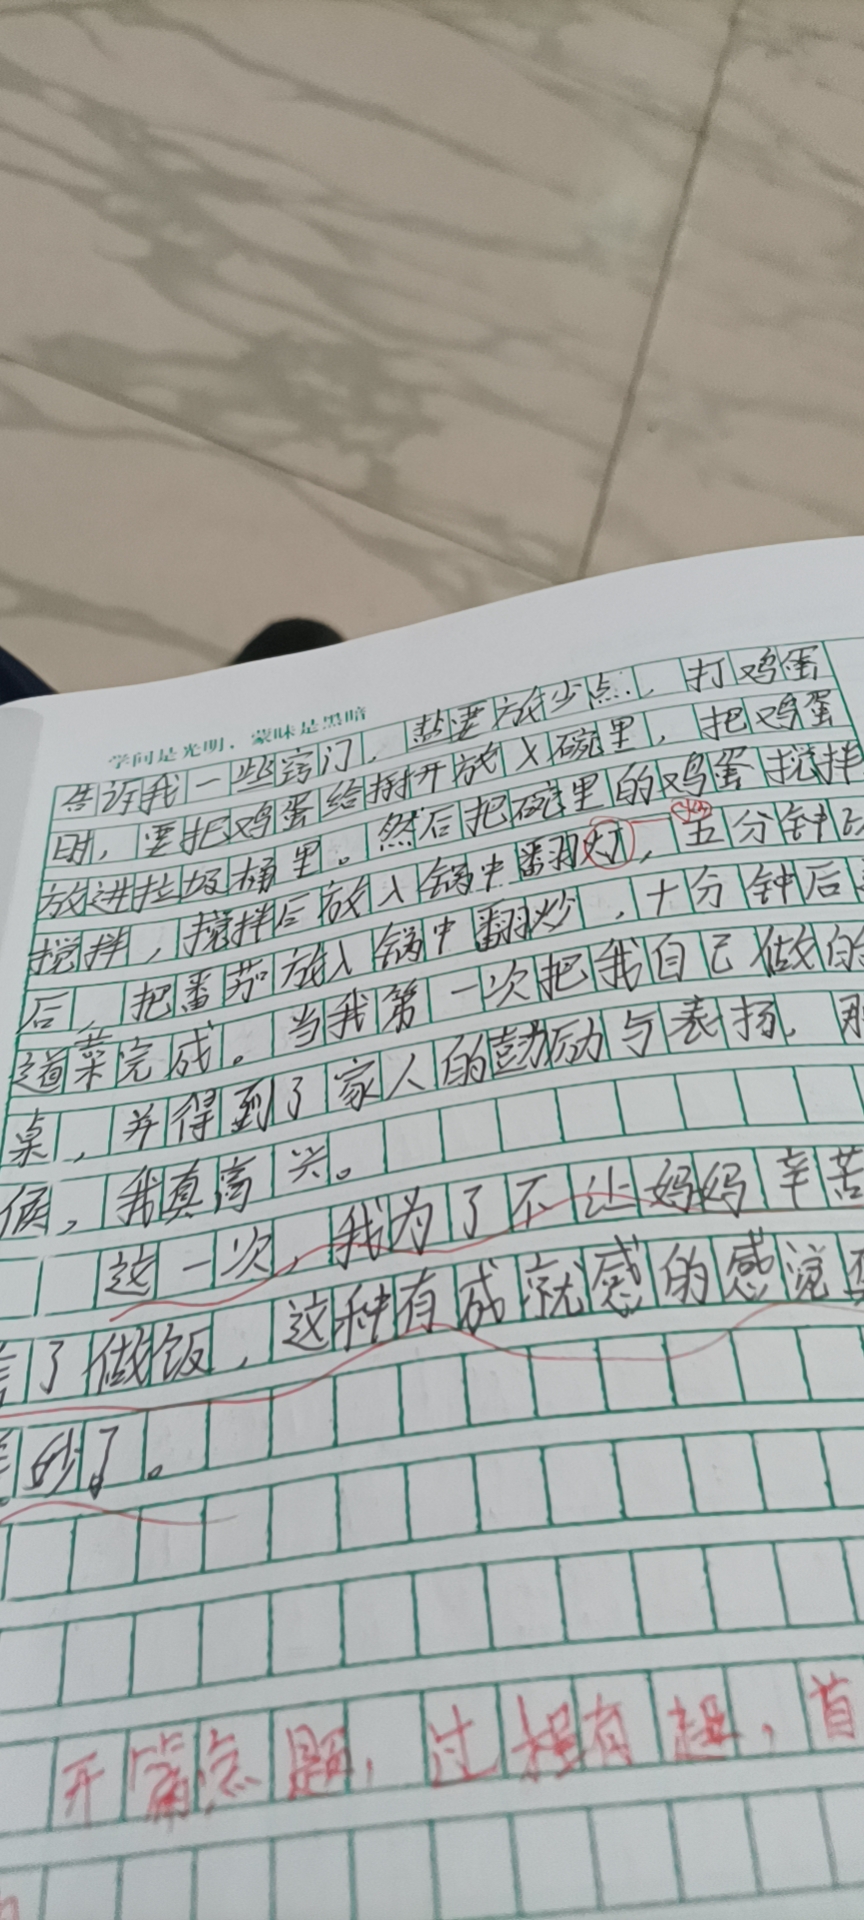 学问是光明，蒙昧是黑暗
告诉我一些窍门，盐要放少点，打鸡蛋
时，要把鸡蛋给打开放入碗里，把鸡蛋
放进垃圾桶里。然后把碗里的鸡蛋搅拌
搅拌，搅拌后放入锅中翻灯，五分钟
炒
后，把番茄放入锅中翻炒，十分钟后
道菜完成。当我第一次把我自己做的
桌，并得到了家人的鼓励与表扬，那
候，我真高兴。
这一次，我为了不让妈妈辛苦
了做饭，这种有成就感的感觉
妙了。
开篇点题，过程有趣，首